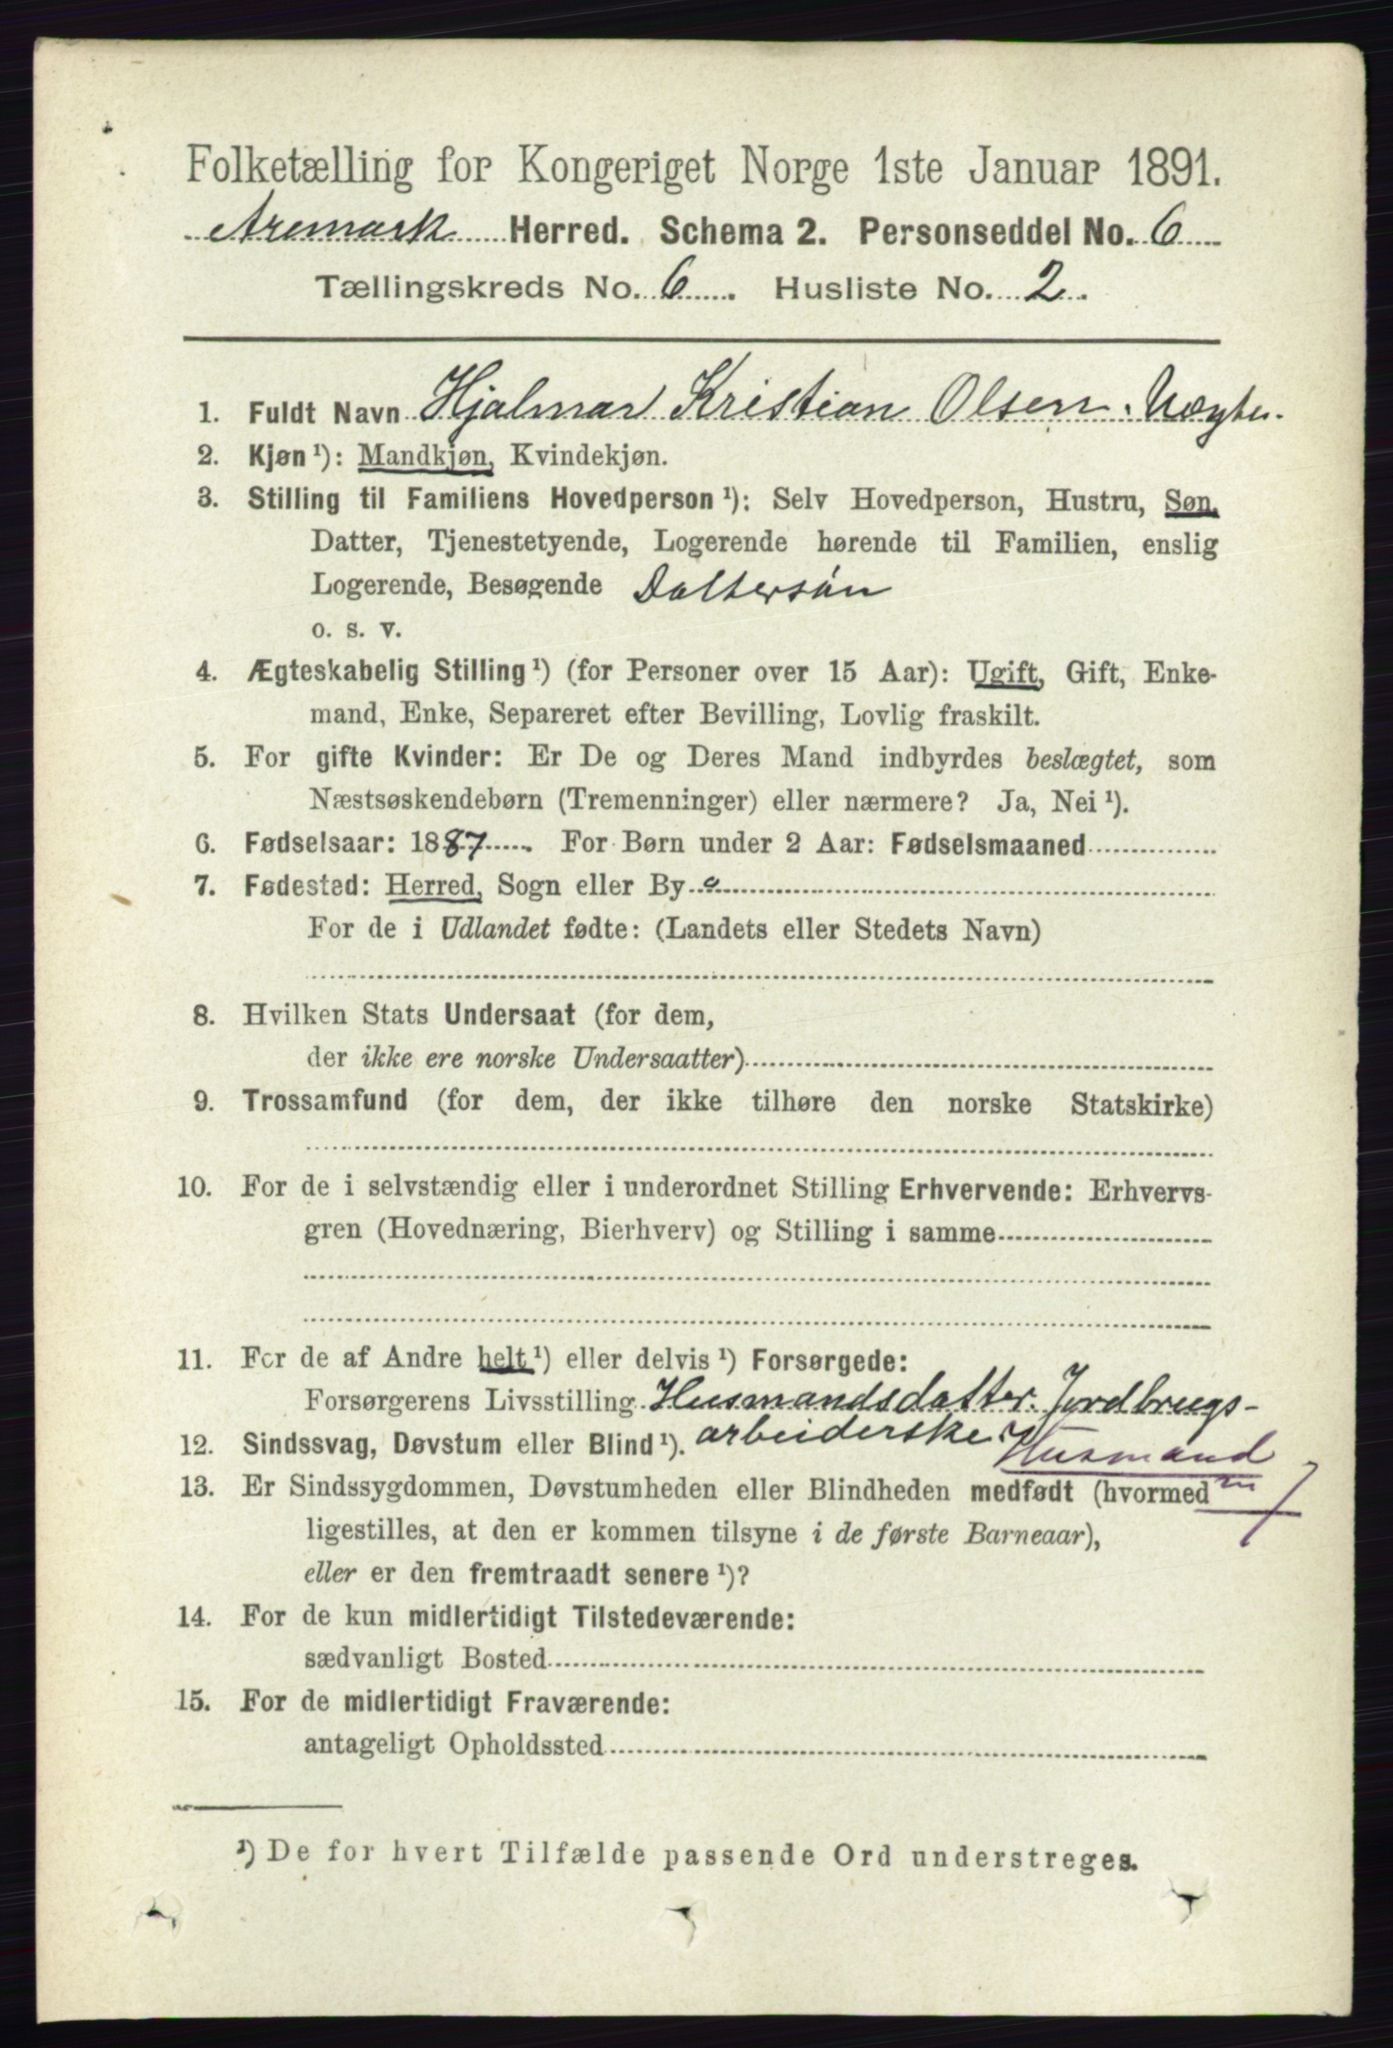 Folketælling for Kongeriget Norge 1ste Januar 1891.
Aremark Herred. Schema 2. Personseddel No. 6
Tællingskreds No. 6. Husliste No. 2.
1. Fuldt Navn Hjalmar Kristian Olsen.
2. Kjøn ¹): Mandkjøn, Kvindekjøn.
3. Stilling til Familiens Hovedperson ¹): Selv Hovedperson, Hustru, Søn,
Datter, Tjenestetyende, Logerende hørende til Familien, enslig
Logerende, Besøgende Dattersøn
o. s. v.
4. Ægteskabelig Stilling ¹) (for Personer over 15 Aar): Ugift, Gift, Enke-
mand, Enke, Separeret efter Bevilling, Lovlig fraskilt.
5. For gifte Kvinder: Er De og Deres Mand indbyrdes beslægtet, som
Næstsøskendebørn (Tremenninger) eller nærmere? Ja, Nei ¹).
6. Fødselsaar: 1887. For Børn under 2 Aar: Fødselsmaaned
7. Fødested: Herred, Sogn eller By
For de i Udlandet fødte: (Landets eller Stedets Navn)
8. Hvilken Stats Undersaat (for dem,
der ikke ere norske Undersaatter)
9. Trossamfund (for dem, der ikke tilhøre den norske Statskirke)
10. For de i selvstændig eller i underordnet Stilling Erhvervende: Erhvervs-
gren (Hovednæring, Bierhverv) og Stilling i samme
11. For de af Andre helt ¹) eller delvis ¹) Forsørgede:
Forsørgerens Livsstilling Husmandsdatter. Jordbrugs-
arbeiderske
12. Sindssvag, Døvstum eller Blind ¹). Husmand
13. Er Sindssygdommen, Døvstumheden eller Blindheden medfødt (hvormed
ligestilles, at den er kommen tilsyne i de første Barneaar),
eller er den fremtraadt senere ¹)?
14. For de kun midlertidigt Tilstedeværende:
sædvanligt Bosted
15. For de midlertidigt Fraværende:
antageligt Opholdssted
¹) De for hvert Tilfælde passende Ord understreges.